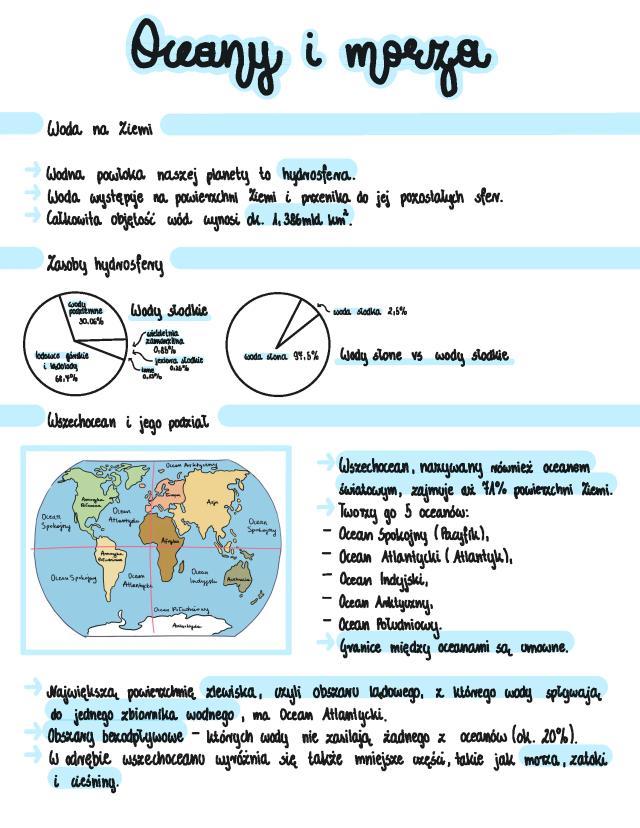 Oceany i morza
Woda na Ziemi
Wodna powłoka naszej planety to hydrosfera.
Woda występuje na powierzchni Ziemi i przenika do jej pozostałych sfer.
Całkowita objętość wód wynosi ok. 1,386mld km³.
Zasoby hydrosfery
wody
podziemne
30,06%
lodowce górskie
i lądolody
68,7%
Wody słodkie
wieloletnia
zmarzlina
0,86%
jeziora słodkie
0,26%
inne
woda słodka 2,5%
woda słona 97,5%
Wody słone vs wody słodkie
Wszechocean i jego podział
Ocean Arktyczny
Ameryka
Północna
Europa
Azja
Ocean
Spokojny
Ocean
Atlantycki
Afryka
Ocean
Spokojny
Ameryka
Południowa
Ocean Spokojny
Ocean
Atlantycki
Ocean
Indyjski
Australia
Ocean Południowy
Antarktyda
Wszechocean, nazywany również oceanem
światowym, zajmuje aż 71% powierzchni Ziemi.
Tworzy go 5 oceanów:
- Ocean Spokojny (Pacyfik),
- Ocean Atlantycki (Atlantyk),
- Ocean Indyjski,
- Ocean Arktyczny,
- Ocean Południowy.
Granice między oceanami są umowne.
Największą powierzchnię zlewiska, czyli obszaru lądowego, z którego wody spływają
do jednego zbiornika wodnego, ma Ocean Atlantycki.
Obszary bezodpływowe - których wody nie zasilają żadnego z oceanów (ok. 20%).
W odrębie wszechoceanu wyróżnia się także mniejsze części, takie jak morza, zatoki
i cieśniny.